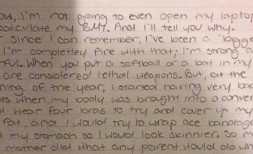 ow, I'm not going to even open my laptop
calculate my BMI. And I'll tell you why.
Since I can remember, I've been a "bigger
I'm completely fine with that; I'm strong
ful. When you put a softball or a bat in my
are considered lethal weapons. But, at the
ning of the year, I started having very
ts when my body was brought into a conver
I wear four bras to try and cover up my
fat, and I would try to wrap ace bandage
my stomach so I would look skinnier. So m
mother did what any parent would do wh